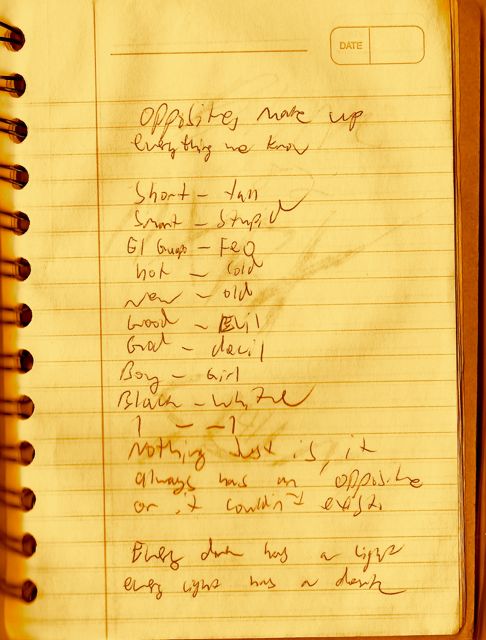 DATE
Opposites make up
everything we know
Short - tall
Smart - Stupid
El Guapo - Feo
hot - cold
new - old
Good - Evil
God - devil
Boy - Girl
Black - White
1 - -1
Nothing Just is, it
always has an opposite
or it couldn't exist.
Every dark has a light
every light has a dark